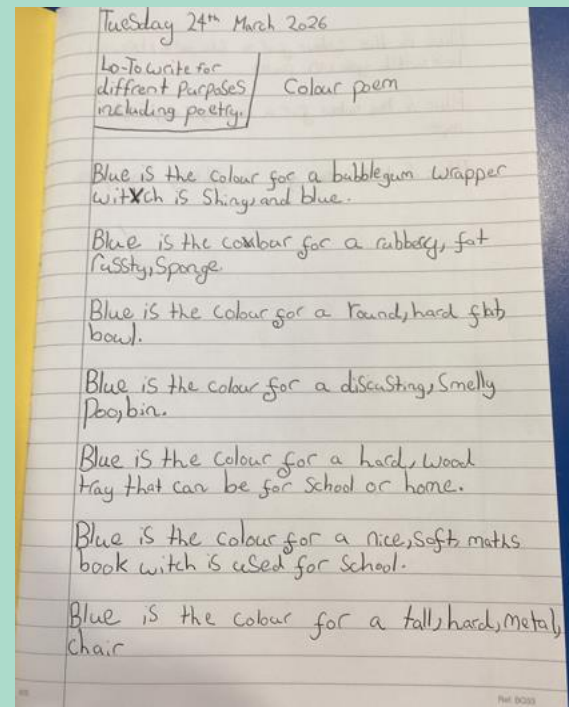 Tuesday 24th March 2026
Lo-To write for
diffrent Purposes
including poetry.
Colour poem
Blue is the colour for a bubblegum wrapper
witch is Shiny, and blue.
Blue is the colour for a rubbery, fat
russty, Sponge.
Blue is the colour for a round, hard flat,
bowl.
Blue is the colour for a discusting, Smelly
Poo, bin.
Blue is the colour for a hard, wood
tray that can be for School or home.
Blue is the colour for a nice, soft, maths
book witch is used for School.
Blue is the colour for a tall, hard, metal,
chair